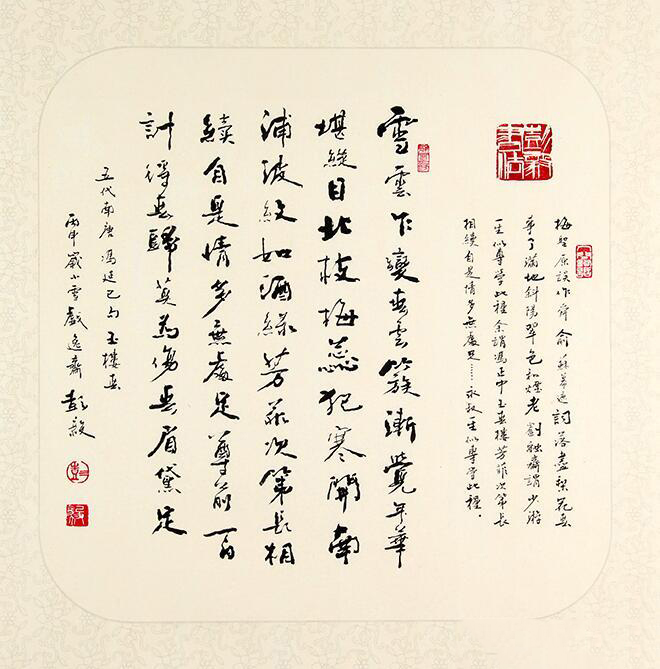 梅聖原誤作舜俞蘇幕遮詞落盡梨花春
事了滿地斜陽翠色和煙老劉融齋謂少游
一生似專學此種余謂馮正中玉春樓芳菲次第長
相續自是情多無處足……永叔一生似專學此種.
雪雲乍變春雲簇漸覺年華
堪縱目北枝梅蕊犯寒開南
浦波紋如酒綠芳菲次第長相
續自是情多無處足尊前百
計得春歸莫為傷春眉黛
五代南唐馮延己句玉樓春
丙申歲小雪戲逸齋彭毅
毅